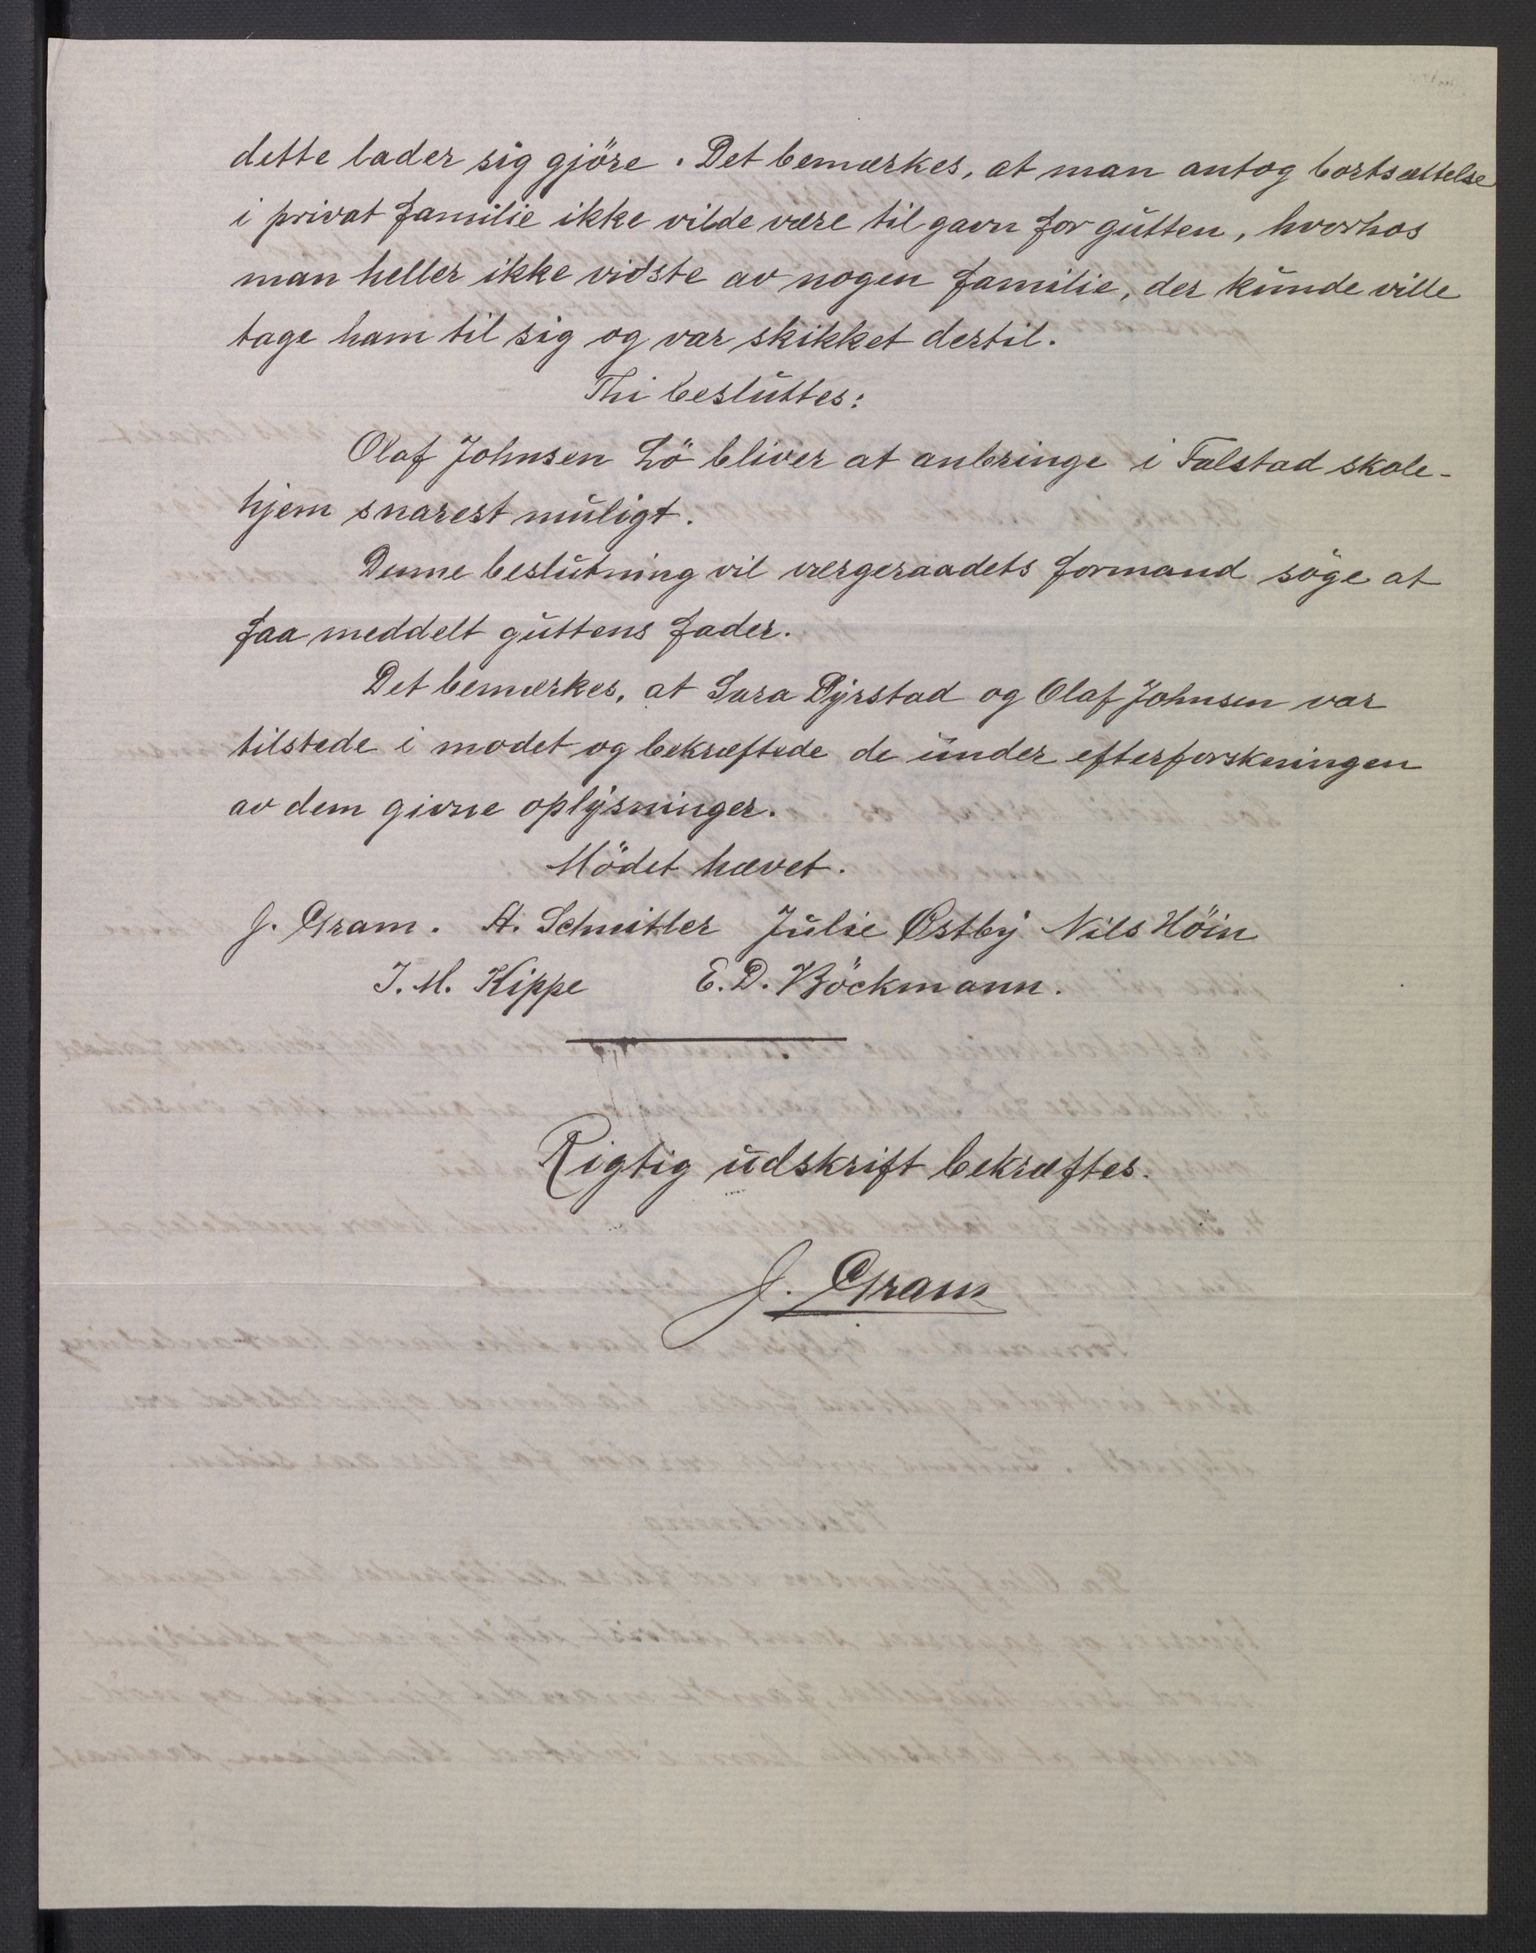 dette lader sig gjöre. Det bemærkes, at man antog bortsættelse
i privat familie ikke vilde være til gavn for gutten, hvorhos
man heller ikke vidste av nogen familie, der kunde ville
tage ham til sig og var skikket dertil.
Thi besluttes:
Olaf Johnsen Lö bliver at anbringe i Falstad skole-
hjem snarest muligt.
Denne beslutning vil værgeraadets formand söge at
faa meddelt guttens fader.
Det bemærkes, at Sara Dyrstad og Olaf Johnsen var
tilstede i modet og bekræftede de under efterforskningen
av dem givne oplysninger.
Mödet hævet.
J. Gram. A. Schnitler Julie Østby Nils Höin
I. M. Kippe E. D. Böckmann.
Rigtig udskrift bekræftes.
J. Gram